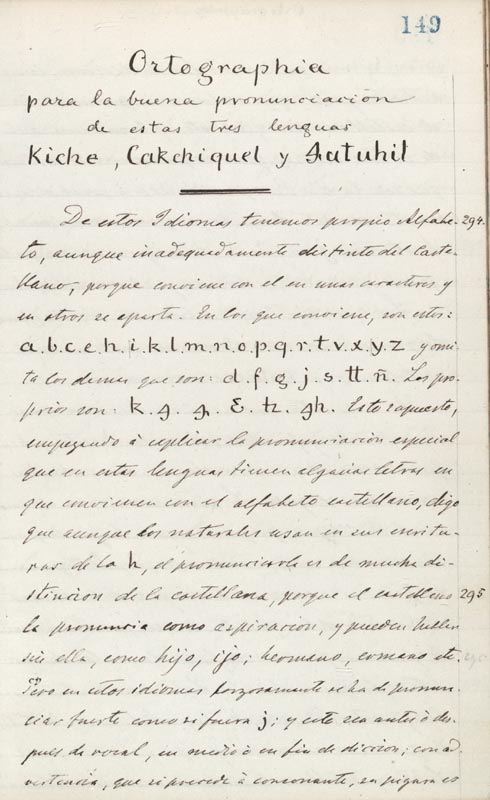 149
Ortographia
para la buena pronunciación
de estas tres lenguas
Kiche, Cakchiquel y 4atuhil
De estos Idiomas tenemos propio Alfabe- 294.
to, aunque inadequedamente distinto del Caste-
llano, porque conviene con el en unas caracteres y
en otros se aparta. En los que conviene, son estos:
a.b.c.e.h.i.k.l.m.n.o.p.q.r.t.v.x.y.z y omi-
ta los demas que son: d.f.g.j.s.tt.ñ. Los pro-
prios son: k.g.4.Ɛ.tz.gh. Esto supuesto,
empezando á esplicar la pronunciación especial
que en estas lenguas tienen algunas letras en
que convienen con el alfabeto castellano, digo
que aunque los naturales usan en sus escritu-
ras de la h, el pronunciarla es de mucha di-
stincion de la castellana, porque el castellano 295
la pronuncia como aspiracion, y pueden hablar
sin ella, como hijo, ijo; hermano, ermano etc.
Pero en estos idiomas forzosamente se ha de pronun-
ciar fuerte como si fuera j; y este sea antes ó des-
pues de vocal, en medio ó en fin de diccion; con ad-
vertencia, que si precede á consonante, su figura es